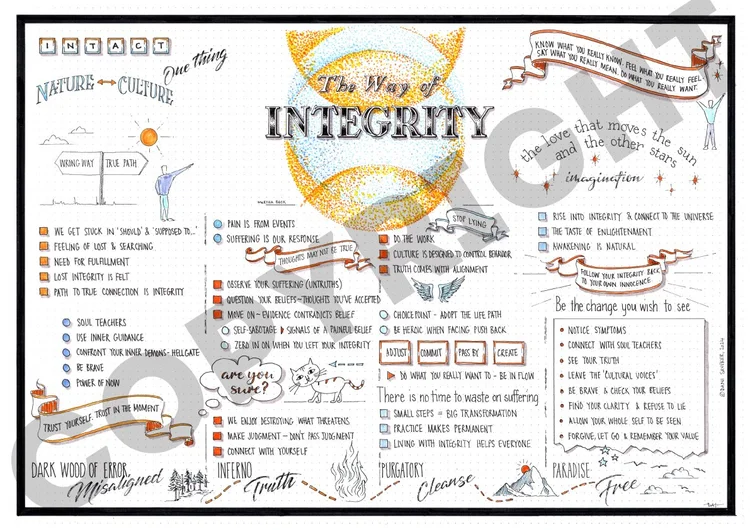 INTACT
NATURE ↔ CULTURE
One thing
WRONG WAY
TRUE PATH
WE GET STUCK IN 'SHOULD' & 'SUPPOSED TO...'
FEELING OF LOST & SEARCHING
NEED FOR FULFILLMENT
LOST INTEGRITY IS FELT
PATH TO TRUE CONNECTION IS INTEGRITY
SOUL TEACHERS
USE INNER GUIDANCE
CONFRONT YOUR INNER DEMONS - HELLGATE
BE BRAVE
POWER OF NOW
TRUST YOURSELF. TRUST IN THE MOMENT
DARK WOOD OF ERROR
Misaligned
The Way of
INTEGRITY
MARTHA BECK
PAIN IS FROM EVENTS
SUFFERING IS OUR RESPONSE
THOUGHTS MAY NOT BE TRUE
OBSERVE YOUR SUFFERING (UNTRUTHS)
QUESTION YOUR BELIEFS - THOUGHTS YOU'VE ACCEPTED
MOVE ON - EVIDENCE CONTRADICTS BELIEF
SELF-SABOTAGE SIGNALS OF A PAINFUL BELIEF
ZERO IN ON WHEN YOU LEFT YOUR INTEGRITY
are you
sure?
WE ENJOY DESTROYING WHAT THREATENS
MAKE JUDGMENT - DON'T PASS JUDGMENT
CONNECT WITH YOURSELF
INFERNO
Truth
STOP LYING
DO THE WORK
CULTURE IS DESIGNED TO CONTROL BEHAVIOR
TRUTH COMES WITH ALIGNMENT
CHOICEPOINT - ADOPT THE LIFE PATH
BE HEROIC WHEN FACING PUSH BACK
ADJUST
COMMIT
PASS BY
CREATE
DO WHAT YOU REALLY WANT TO - BE IN FLOW
There is no time to waste on suffering
SMALL STEPS = BIG TRANSFORMATION
PRACTICE MAKES PERMANENT
LIVING WITH INTEGRITY HELPS EVERYONE
PURGATORY
Cleanse
KNOW WHAT YOU REALLY KNOW. FEEL WHAT YOU REALLY FEEL.
SAY WHAT YOU REALLY MEAN. DO WHAT YOU REALLY WANT.
the love that moves the sun
and the other stars
imagination
RISE INTO INTEGRITY & CONNECT TO THE UNIVERSE
THE TASTE OF ENLIGHTENMENT
AWAKENING IS NATURAL
FOLLOW YOUR INTEGRITY BACK
TO YOUR OWN INNOCENCE
Be the change you wish to see
NOTICE SYMPTOMS
CONNECT WITH SOUL TEACHERS
SEE YOUR TRUTH
LEAVE THE 'CULTURAL VOICES'
BE BRAVE & CHECK YOUR BELIEFS
FIND YOUR CLARITY & REFUSE TO LIE
ALLOW YOUR WHOLE SELF TO BE SEEN
FORGIVE, LET GO & REMEMBER YOUR VALUE
PARADISE
Free
COPYRIGHT